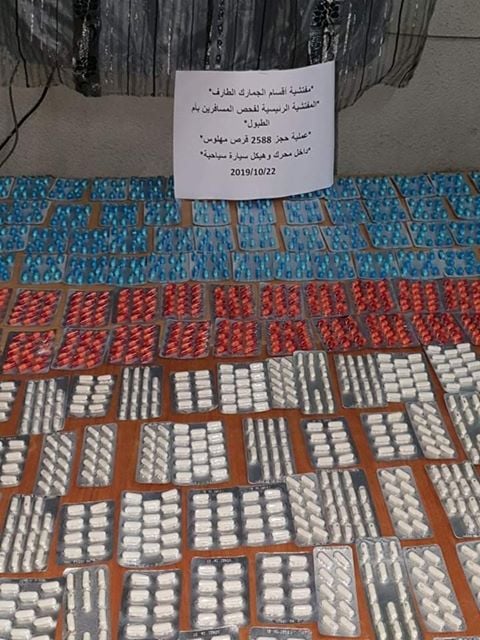 *مفتشية أقسام الجمارك الطارف*
*المفتشية الرئيسية لفحص المسافرين بأم
الطبول*
*عملية حجز 2588 قرص مهلوس*
*داخل محرك وهيكل سيارة سياحية*
2019/10/22